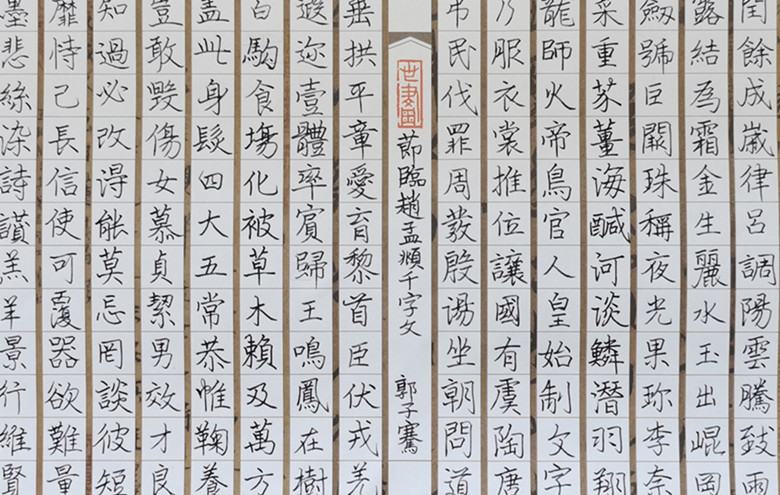 閏餘成歲律呂調陽雲騰致雨
露結為霜金生麗水玉出崐岡
劔號巨闕珠稱夜光果珎李奈
菜重芥薑海鹹河淡鱗潛羽翔
龍師火帝鳥官人皇始制文字
乃服衣裳推位讓國有虞陶唐
弔民伐罪周發殷湯坐朝問道
節臨趙孟頫千字文 郭子騫
垂拱平章愛育黎首臣伏戎羌
遐迩壹體率賓歸王鳴鳳在樹
白駒食場化被草木賴及萬方
盖此身髮四大五常恭惟鞠養
豈敢毀傷女慕貞絜男效才良
知過必改得能莫忘罔談彼短
靡恃己長信使可覆器欲難量
墨悲絲染詩讃羔羊景行維賢